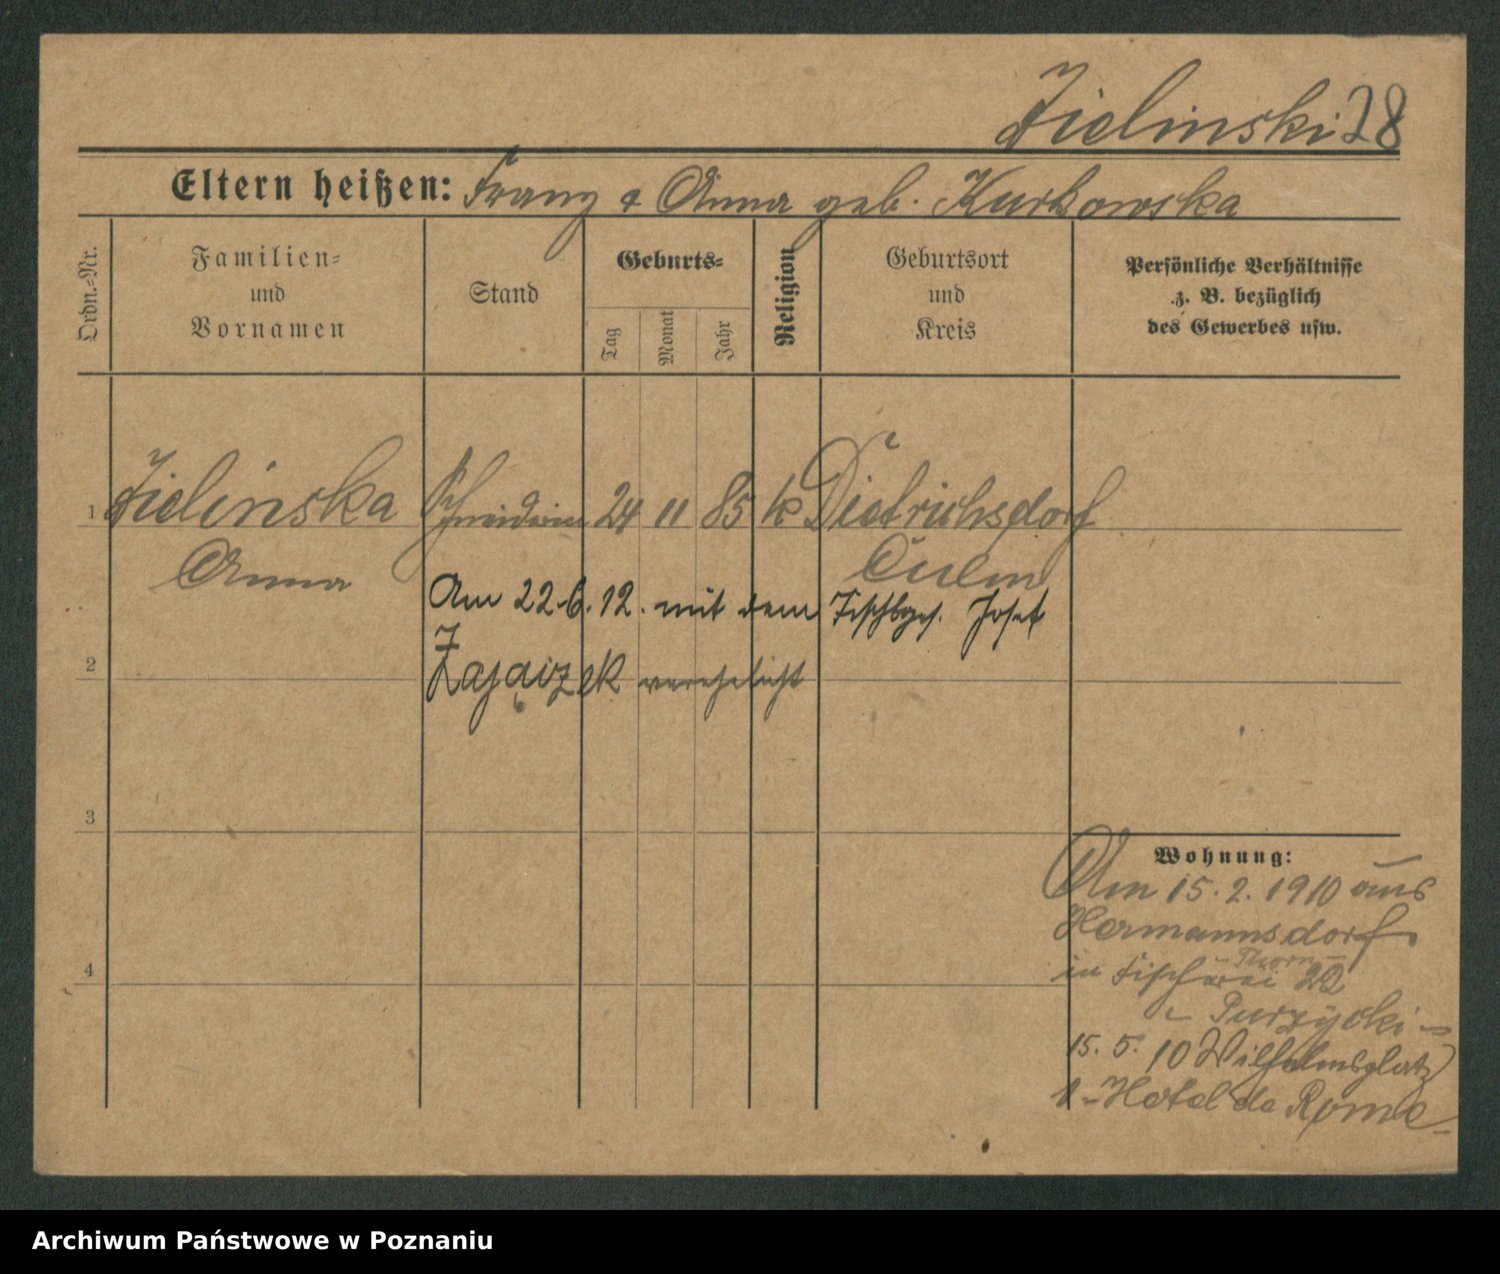 Zielinski 28
Eltern heißen: Franz & Anna geb. Kurkowska
Ordn.-Nr.
Familien-
und
Vornamen
Stand
Geburts-
Tag
Monat
Jahr
Religion
Geburtsort
und
Kreis
Persönliche Verhältnisse
z. B. bezüglich
des Gewerbes usw.
1 Zielinska Schneiderin 24 11 85 k Dietrichsdorf
Anna Culm
Am 22.6.12. mit dem Tischlges. Josef
2
Zajączek verehelicht
3
Wohnung:
Am 15.2.1910 aus
Hermannsdorf
- Thorn -
4
in Fischerei 22
- Purzycki -
15.5.10 Wilhelmsplatz
1 - Hotel de Rome -
Archiwum Państwowe w Poznaniu